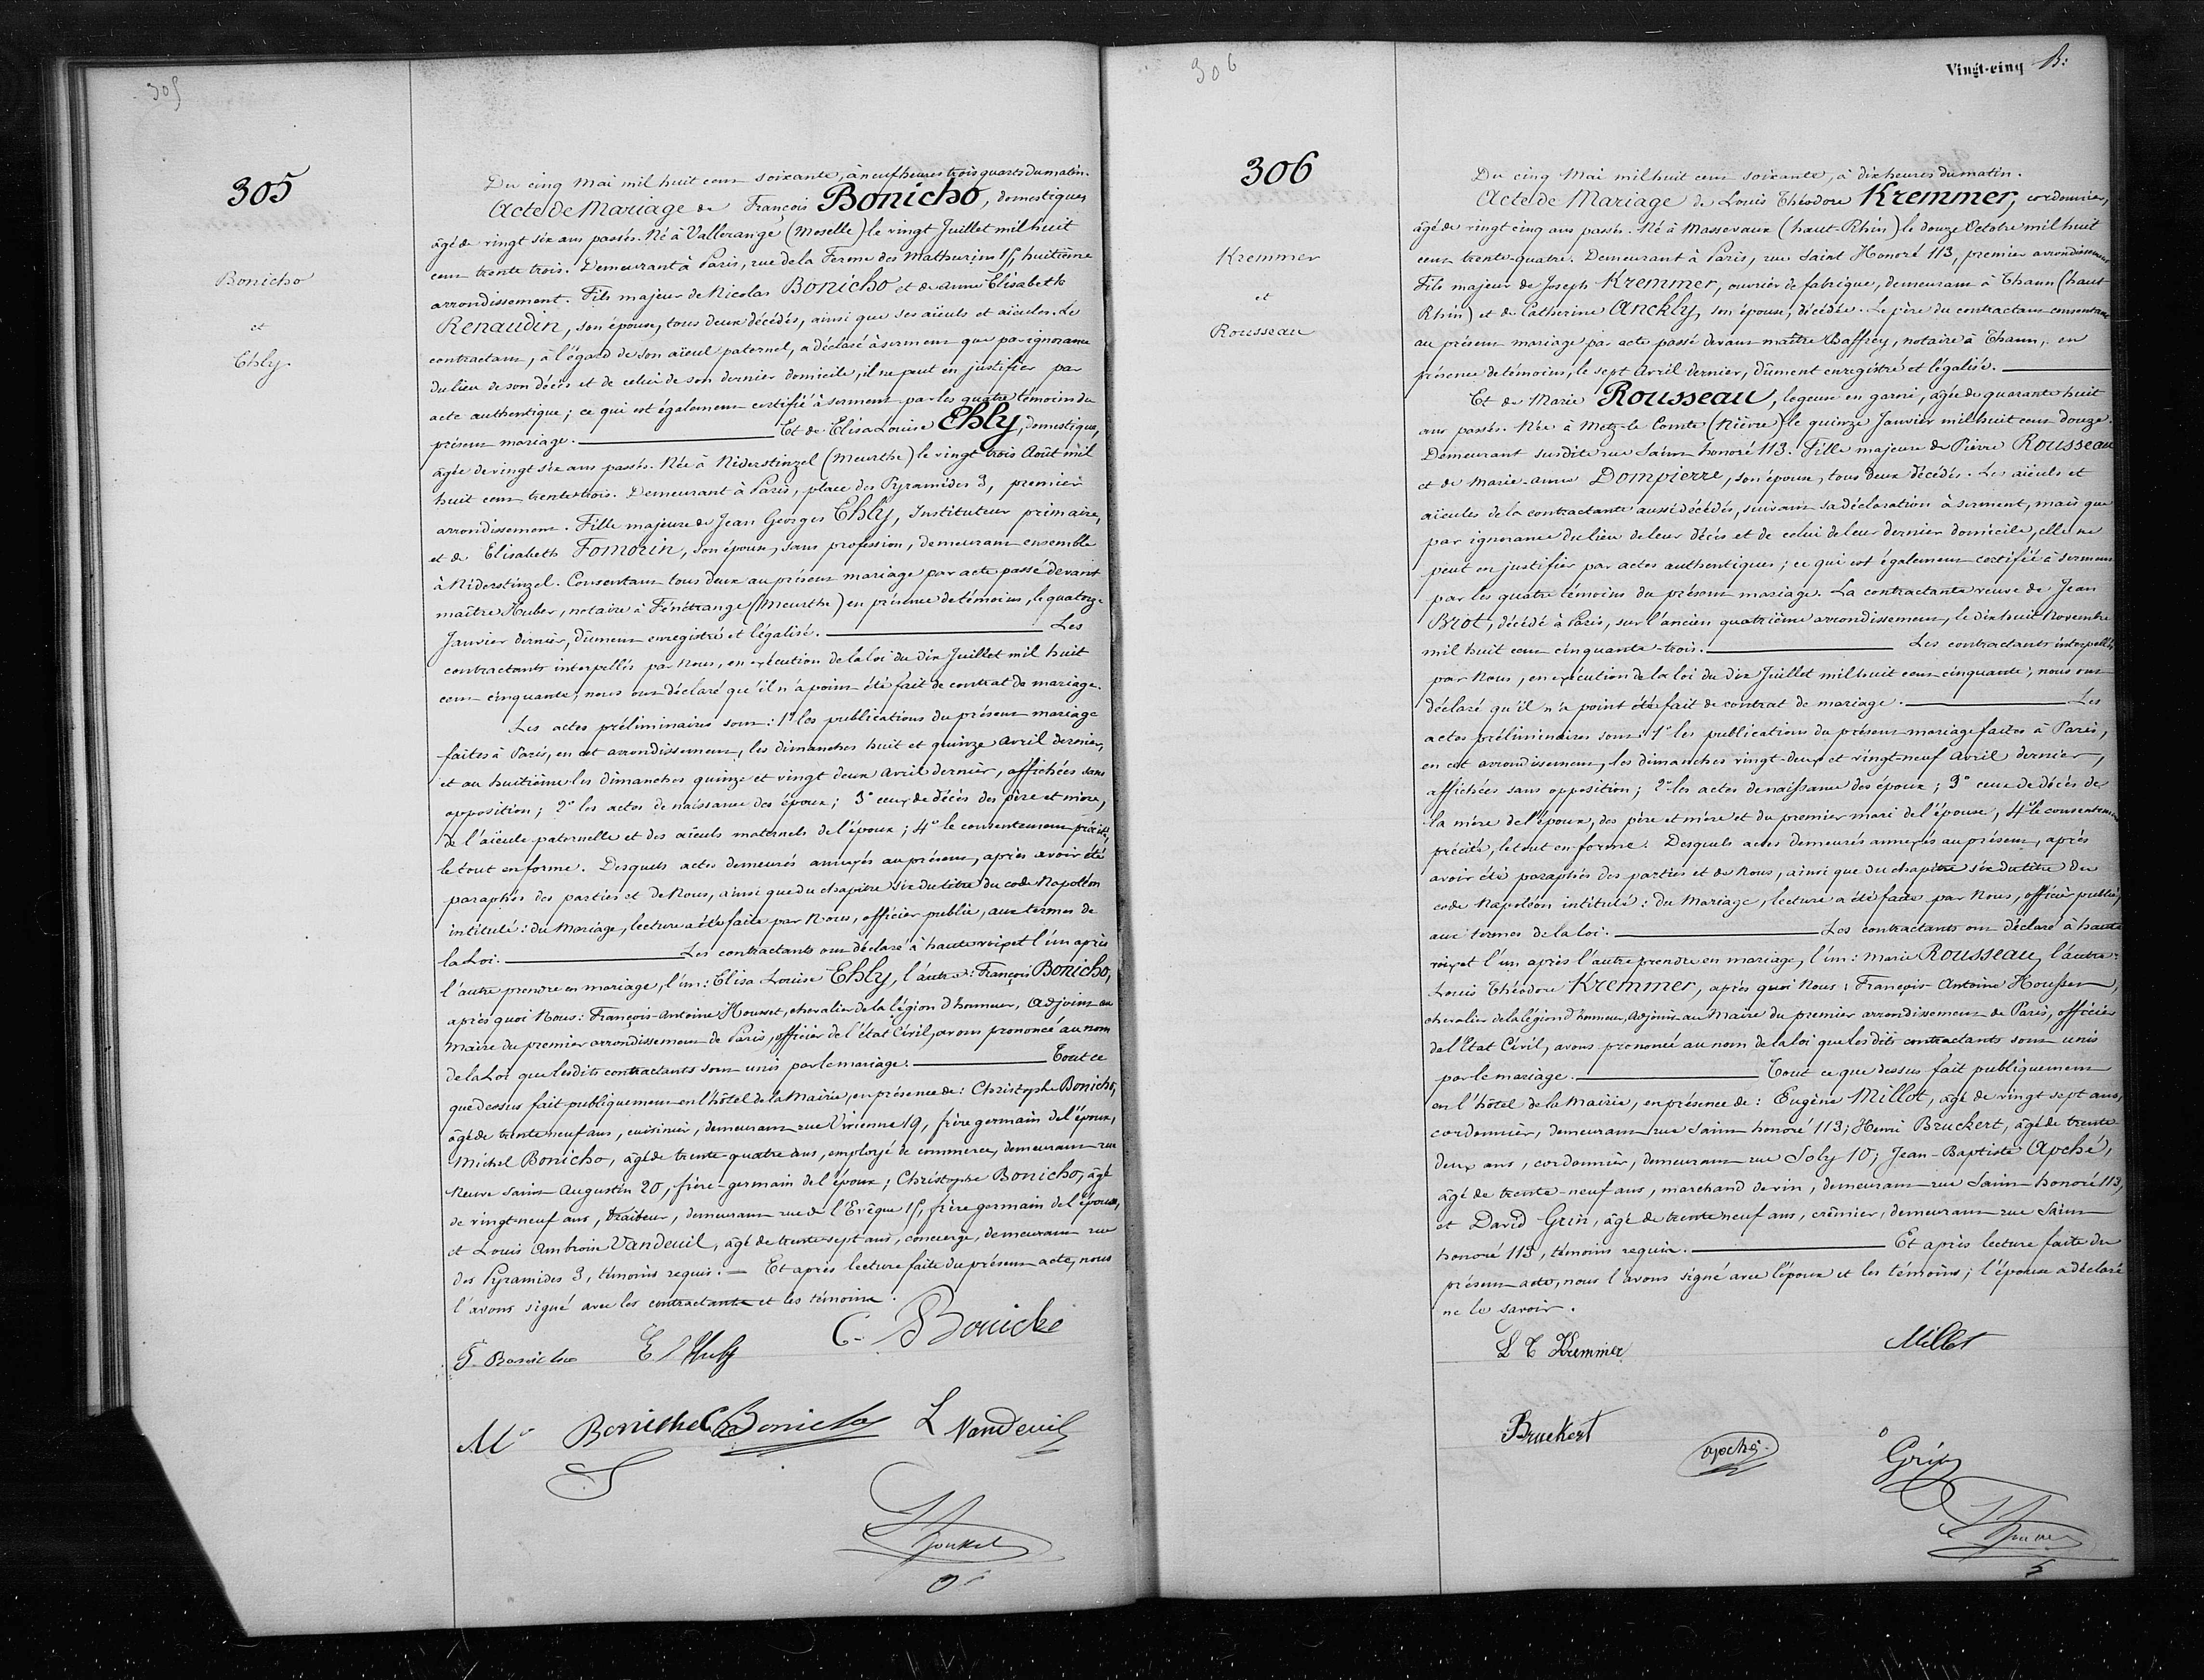 305
305
Bonicho
et
Ehly.
Du cinq Mai mil huit cent soixante, à neuf heures trois quarts du matin.
Acte de Mariage de François Bonicho, domestique,
âgé de vingt six ans passés. Né à Vallerange (Moselle) le vingt Juillet mil huit
cent trente trois. Demeurant à Paris, rue de la Ferme des Mathurins 15, huitième
arrondissement. Fils majeur de Nicolas Bonicho et de Anne Elisabeth
Renaudin, son épouse, tous deux décédés, ainsi que ses aïeuls et aïeules. Le
contractant, à l'égard de son aïeul paternel, a déclaré à serment que par ignorance
du lieu de son décès et de celui de son dernier domicile, il ne peut en justifier par
acte authentique; ce qui est également certifié à serment par les quatre témoins du
présent mariage. Et de Elisa Louise Ehly, domestique,
âgée de vingt six ans passés. Née à Niderstinzel (Meurthe) le vingt trois Août mil
huit cent trente trois. Demeurant à Paris, place des Pyramides 3, premier
arrondissement. Fille majeure de Jean Georges Ehly, Instituteur primaire,
et de Elisabeth Fomorin, son épouse, sans profession, demeurant ensemble
à Niderstinzel. Consentant tous deux au présent mariage par acte passé devant
maître Huber, notaire à Fénétrange (Meurthe) en présence de témoins, le quatorze
Janvier dernier, dûment enregistré et légalisé. Les
contractants interpellés par Nous, en exécution de la loi du dix Juillet mil huit
cent cinquante, nous ont déclaré qu'il n'a point été fait de contrat de mariage.
Les actes préliminaires sont: 1° les publications du présent mariage
faites à Paris, en cet arrondissement, les dimanches huit et quinze avril dernier,
et au huitième les dimanches quinze et vingt deux avril dernier, affichées sans
opposition; 2° les actes de naissance des époux; 3° ceux de décès des père et mère,
de l'aïeule paternelle et des aïeuls maternels de l'époux; 4° le consentement précité,
le tout en forme. Desquels actes demeurés annexés au présent, après avoir été
paraphés des parties et de Nous, ainsi que du chapitre six du titre du code Napoléon
intitulé: du Mariage, lecture a été faite par Nous, officier public, aux termes de
la Loi. Les contractants ont déclaré à haute voix et l'un après
l'autre prendre en mariage, l'un: Elisa Louise Ehly, l'autre: François Bonicho,
après quoi Nous: François-Antoine Housset, chevalier de la légion d'honneur, Adjoint au
Maire du premier arrondissement de Paris, officier de l'état Civil, avons prononcé au nom
de la Loi que lesdits contractants sont unis par le mariage. Tout ce
que dessus fait publiquement en l'hôtel de la Mairie, en présence de: Christophe Bonicho,
âgé de trente neuf ans, cuisinier, demeurant rue Vivienne 19, frère germain de l'époux,
Michel Bonicho, âgé de trente quatre ans, employé de commerce, demeurant rue
Neuve Saint Augustin 20, frère-germain de l'époux; Christophe Bonicho, âgé
de vingt-neuf ans, traiteur, demeurant rue de l'Evêque 15, frère germain de l'époux,
et Louis Ambroise Vandeuil, âgé de trente sept ans, concierge, demeurant rue
des Pyramides 3, témoins requis. Et après lecture faite du présent acte, nous
l'avons signé avec les contractants et les témoins.
F. Bonicho E L Ehly C. Bonicho
Ml Bonicho C Bonicho L Vandeuil
Housset
306
Vingt-cinq
306
Kremmer
et
Rousseau
Du cinq Mai mil huit cent soixante, à dix heures du matin.
Acte de Mariage de Louis Théodore Kremmer, cordonnier,
âgé de vingt cinq ans passés. Né à Massevaux (haut-Rhin) le douze Octobre mil huit
cent trente-quatre. Demeurant à Paris, rue Saint Honoré 113, premier arrondissement
Fils majeur de Joseph Kremmer, ouvrier de fabrique, demeurant à Thann (haut
Rhin) et de Catherine Anckly, son épouse, décédée. Le père du contractant consentant
au présent mariage par acte passé devant maître Chaffrey, notaire à Thann, en
présence de témoins, le sept avril dernier, dûment enregistré et légalisé.
Et de Marie Rousseau, logeuse en garni, âgée de quarante huit
ans passés. Née à Metz-le Comte (Nièvre) le quinze Janvier mil huit cent douze.
Demeurant susdite rue Saint honoré 113. Fille majeure de Pierre Rousseau
et de Marie-anne Dompierre, son épouse, tous deux décédés. Les aïeuls et
aïeules de la contractante aussi décédés, suivant sa déclaration à serment, mais que
par ignorance du lieu de leur décès et de celui de leur dernier domicile, elle ne
peut en justifier par actes authentiques; ce qui est également certifié à serment
par les quatre témoins du présent mariage. La contractante veuve de Jean
Brot, décédé à Paris, sur l'ancien quatrième arrondissement, le dix huit Novembre
mil huit cent cinquante-trois. Les contractants interpellés
par Nous, en exécution de la loi du dix Juillet mil huit cent cinquante, nous ont
déclaré qu'il n'a point été fait de contrat de mariage. Les
actes préliminaires sont: 1° les publications du présent mariage faites à Paris,
en cet arrondissement, les dimanches vingt-deux et vingt-neuf avril dernier,
affichées sans opposition; 2° les actes de naissance des époux; 3° ceux de décès de
la mère de l'époux, des père et mère et du premier mari de l'épouse, 4° le consentement
précité, le tout en forme. Desquels actes demeurés annexés au présent, après
avoir été paraphés des parties et de Nous, ainsi que du chapitre six du titre du
code Napoléon intitulé: du Mariage, lecture a été faite par Nous, officier public,
aux termes de la loi. Les contractants ont déclaré à haute
voix et l'un après l'autre prendre en mariage, l'un: Marie Rousseau, l'autre:
Louis Théodore Kremmer, après quoi Nous: François-Antoine Housset,
chevalier de la légion d'honneur, Adjoint au Maire du premier arrondissement de Paris, officier
de l'Etat Civil, avons prononcé au nom de la loi que les dits contractants sont unis
par le mariage. Tout ce que dessus fait publiquement
en l'hôtel de la Mairie, en présence de: Eugène Millot, âgé de vingt sept ans,
cordonnier, demeurant rue Saint honoré 113; Henri Bruckert, âgé de trente
deux ans, cordonnier, demeurant rue Soly 10; Jean-Baptiste Apché,
âgé de trente-neuf ans, marchand de vin, demeurant rue Saint honoré 113,
et David Grin, âgé de trente neuf ans, crêmier, demeurant rue Saint
honoré 113, témoins requis. Et après lecture faite du
présent acte, nous l'avons signé avec l'époux et les témoins; l'épouse a déclaré
ne le savoir.
L T Kremmer Millot
Bruckert apché Grin
Housset